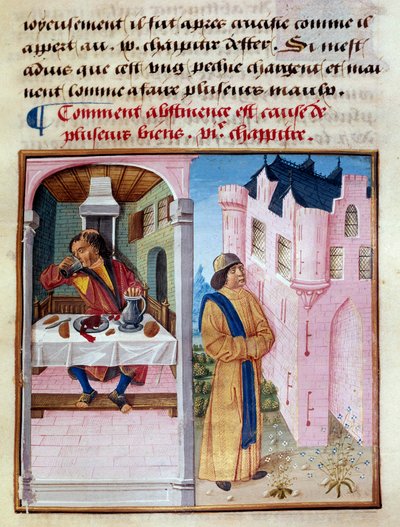 ioyeusement il fut apres crucifie comme il
appert au .vo. chapitre dester. Si mest
aduis que cest vng pechie changent et mai
uent comme a faire pluseurs maulx.
Comment abstinence est cause de
pluseurs biens. vie. chappitre.